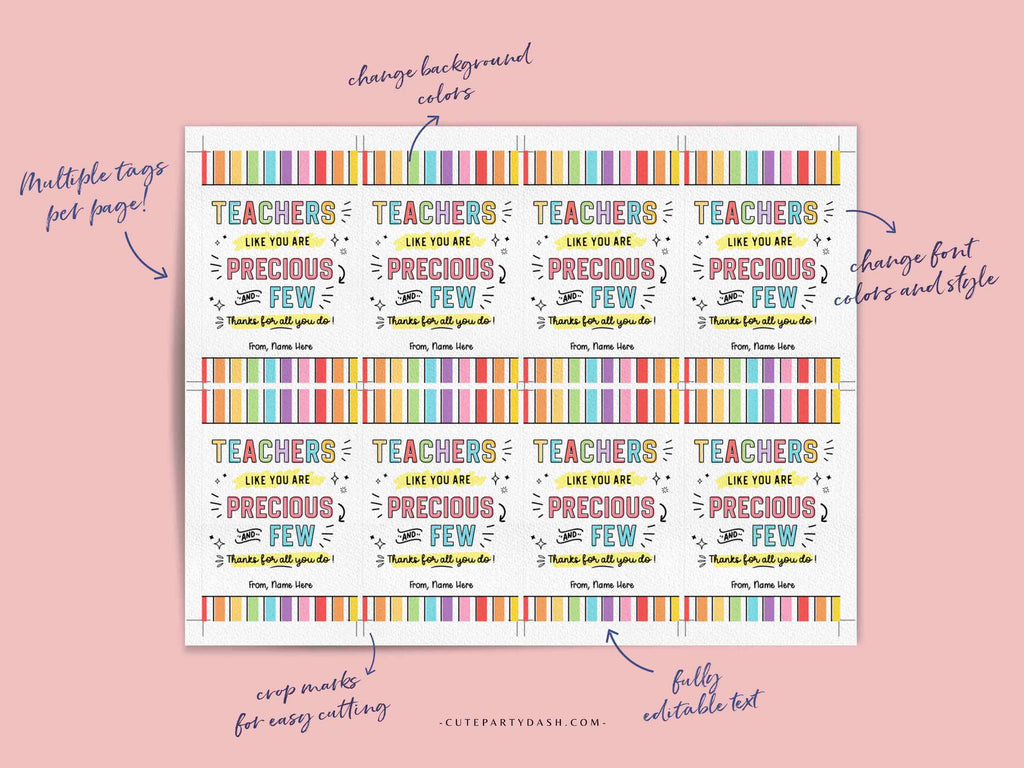 change background
colors
Multiple tags
per page!
TEACHERS TEACHERS TEACHERS TEACHERS
LIKE YOU ARE LIKE YOU ARE LIKE YOU ARE LIKE YOU ARE
PRECIOUS PRECIOUS PRECIOUS PRECIOUS
AND FEW AND FEW AND FEW AND FEW
Thanks for all you do! Thanks for all you do! Thanks for all you do! Thanks for all you do!
From, Name Here From, Name Here From, Name Here From, Name Here
change font
colors and style
TEACHERS TEACHERS TEACHERS TEACHERS
LIKE YOU ARE LIKE YOU ARE LIKE YOU ARE LIKE YOU ARE
PRECIOUS PRECIOUS PRECIOUS PRECIOUS
AND FEW AND FEW AND FEW AND FEW
Thanks for all you do! Thanks for all you do! Thanks for all you do! Thanks for all you do!
From, Name Here From, Name Here From, Name Here From, Name Here
crop marks
for easy cutting
fully
editable text
-CUTEPARTYDASH.COM-